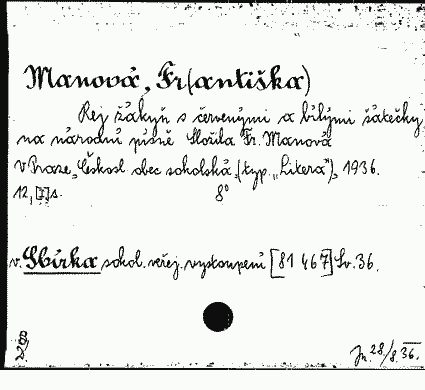 Manová, Fr(antiška)
Rej žákyň s červenými a bílými šátečky
na národní písně Složila Fr. Manová
V Praze, Českosl. obec sokolská, (typ. „Litera"), 1936.
12, [I] s. 8°
v. Sbírka sokol. veřej. vystoupení [81 467] Sv. 36.
Jn. 28/8. 36.